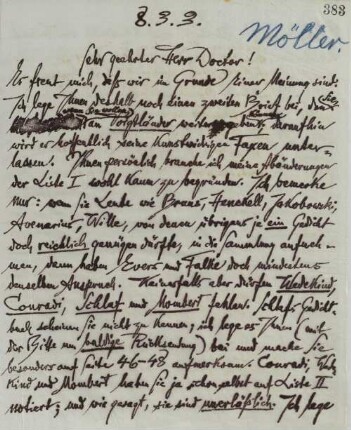 383
8.3.3.
Möller.
Sehr geehrter Herr Doctor!
Es freut mich, daß wir im Grunde Einer Meinung sind.
Ich lege Ihnen deshalb noch einen zweiten Brief bei, den Sie
an Voigtländer weiter daraufhin
wird er hoffentlich seine Kunstwidrigen Faxen unter-
lassen. Ihnen persönlich brauche ich meine Abänderungen
der Liste I wohl kaum zu begründen. Ich bemerke
nur: wenn Sie Leute wie Henckell, Jakobowski,
Avenarius, Wille, von denen übrigens je ein Gedicht
doch reichlich genügen dürfte, in die Sammlung aufneh-
men, dann haben Evers und Falke doch mindestens
denselben Anspruch. Keinesfalls aber dürfen Wedekind,
Conradi, Schlaf und Mombert fehlen. Schlafs Gedicht-
buch scheinen Sie nicht zu kennen; ich lege es Ihnen (mit
der Bitte um baldige Rücksendung) bei und mache Sie
besonders auf Seite 46-48 aufmerksam. Conradi, Wede-
kind und Mombert haben Sie ja schon selbst auf Liste II
notiert; und wie gesagt, sie sind unerläßlich. Ich lege